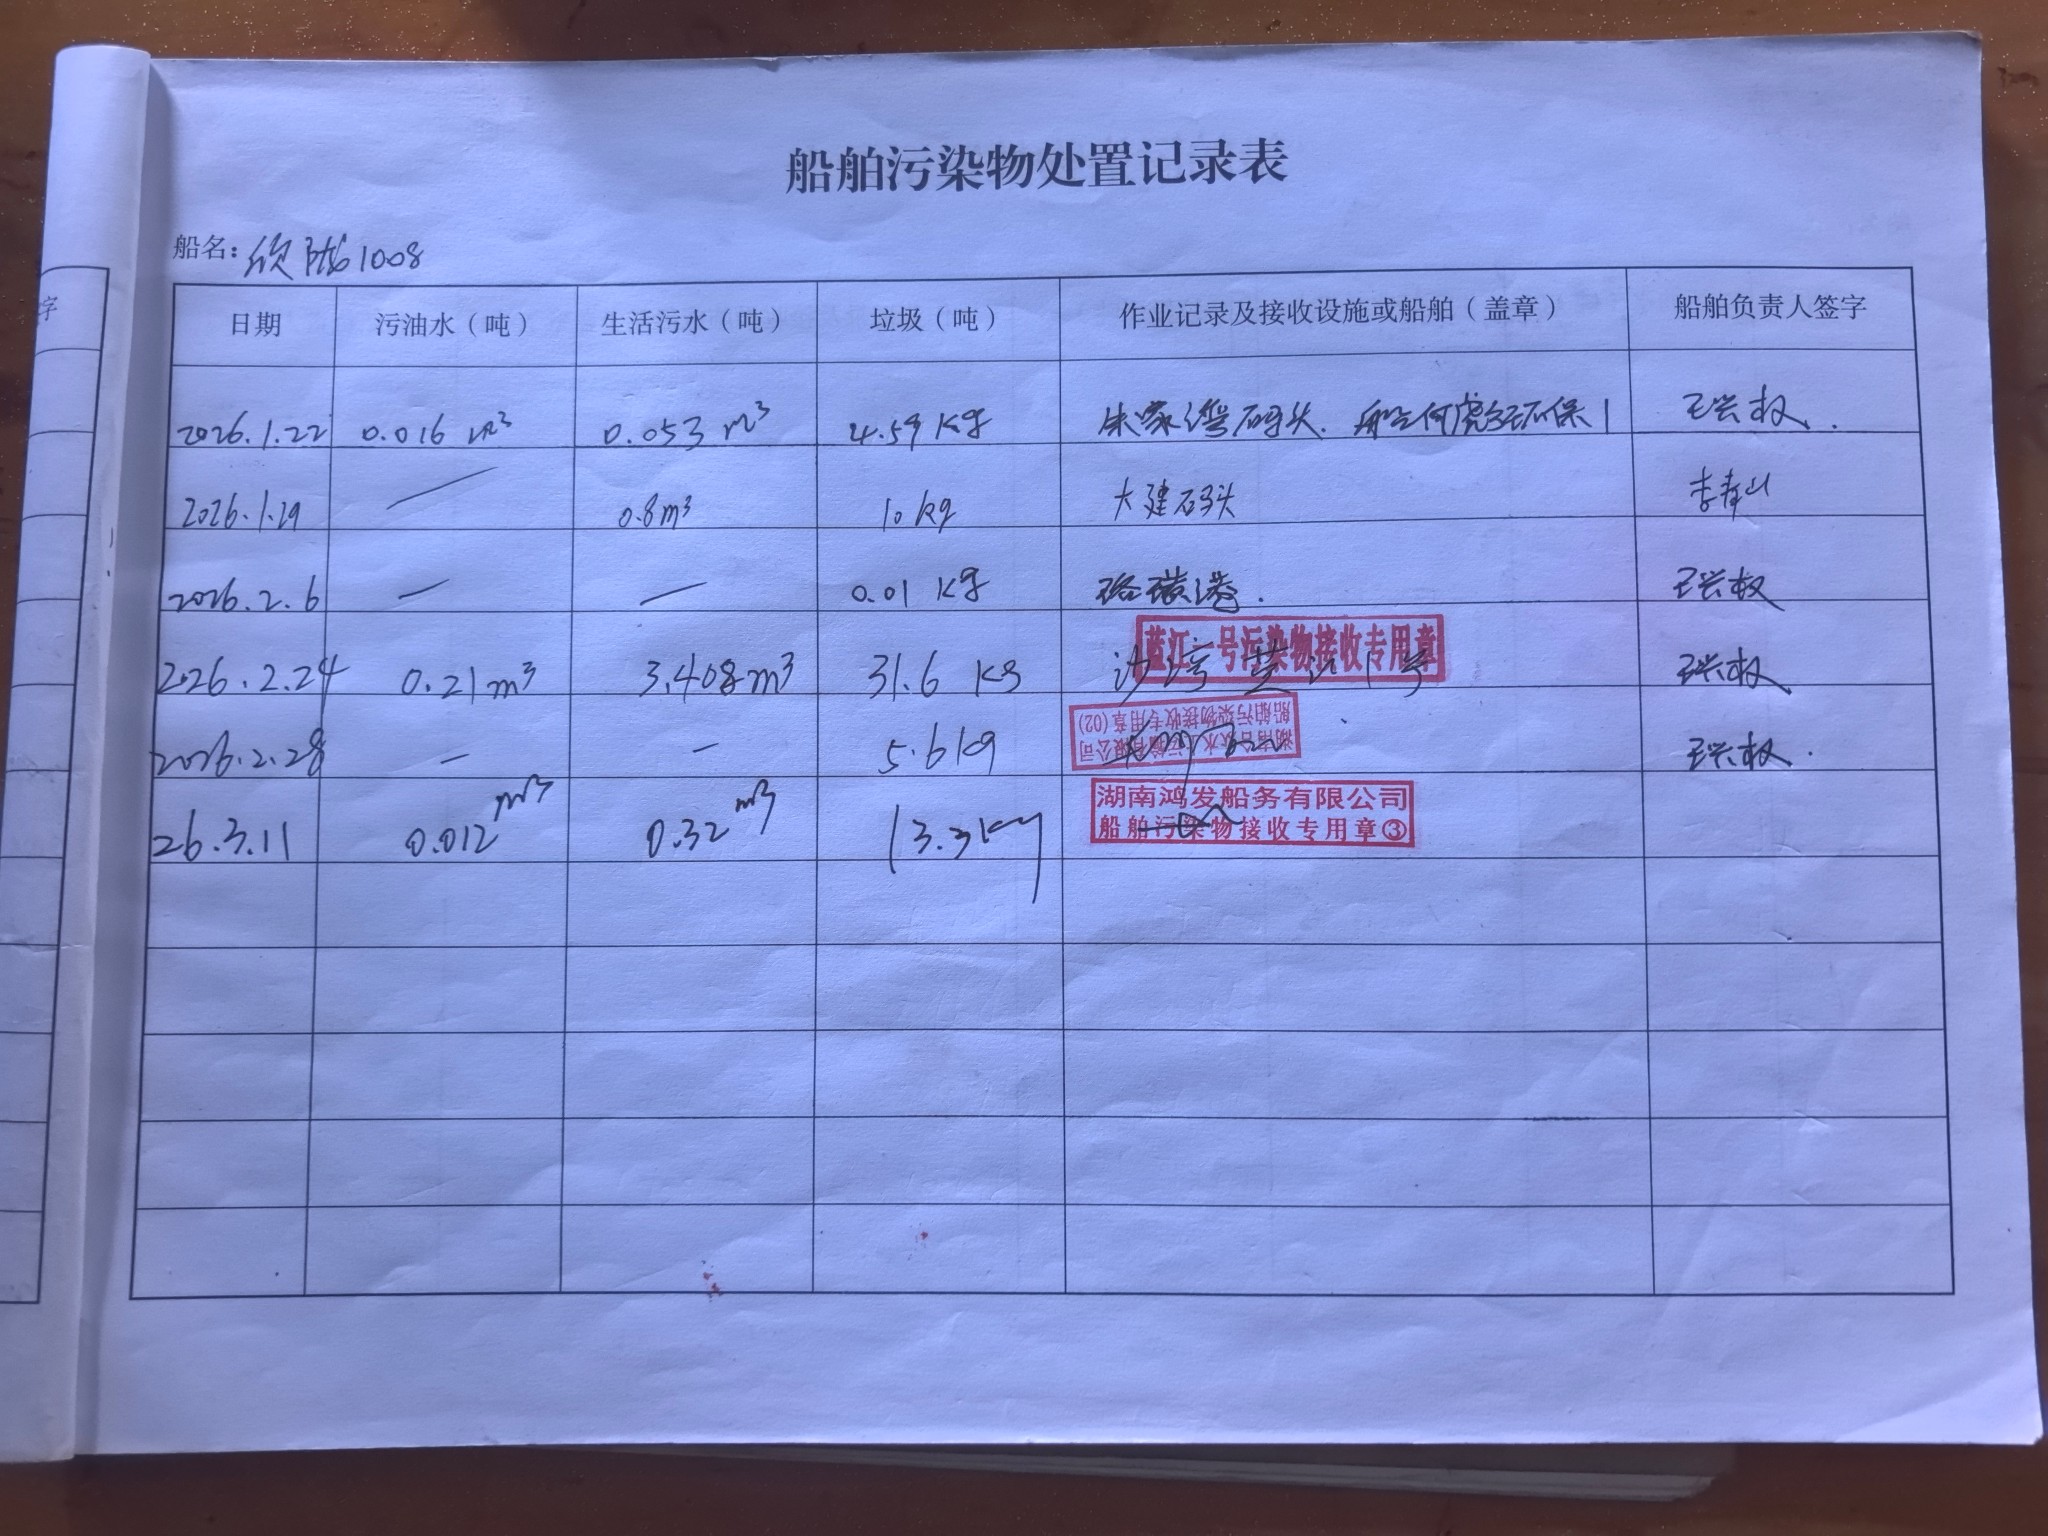 船舶污染物处置记录表
船名：欣陇1008
字
日期 污油水（吨） 生活污水（吨） 垃圾（吨） 作业记录及接收设施或船舶（盖章） 船舶负责人签字
2026.1.22 0.016 m³ 0.053 m³ 4.59 Kg 朱家湾码头. 环保1 王兴权.
2026.1.29 — 0.8m³ 10 kg 大建码头 李青山
2026.2.6 — — 0.01 Kg 港. 王兴权
蓝江一号污染物接收专用章
2026.2.24 0.21m³ 3.408m³ 31.6 KG 沙湾 1号 王兴权
船舶污染物接收专用章(02)
2026.2.28 — — 5.6kg 王兴权.
湖南鸿发船务有限公司
船舶污染物接收专用章③
26.3.11 0.012m³ 0.32m³ 13.3Kg